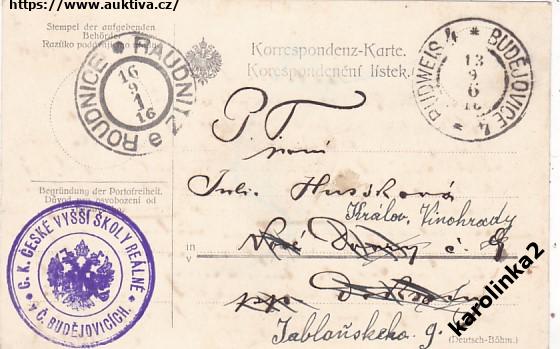 https://www.auktiva.cz/
Stempel der aufgebenden
Behörde.
Razítko
ROUDNICE e RAUDNITZ
16
9
1
16
Korrespondenz-Karte.
Korespondenční lístek.
BUDWEIS 4 * BUDĚJOVICE 4 *
13
9
6
16
P. T.
paní
Julie Hussková
Begründung der Portofreiheit.
Důvod pro osvobození od
Králov. Vinohrady
in
v
Nové Dvory č. 9
C. K. ČESKÉ VYŠŠÍ ŠKOLY REÁLNÉ
v Č. BUDĚJOVICÍCH.
Jablonského 9.
(Deutsch-Böhm.)
karolinka2